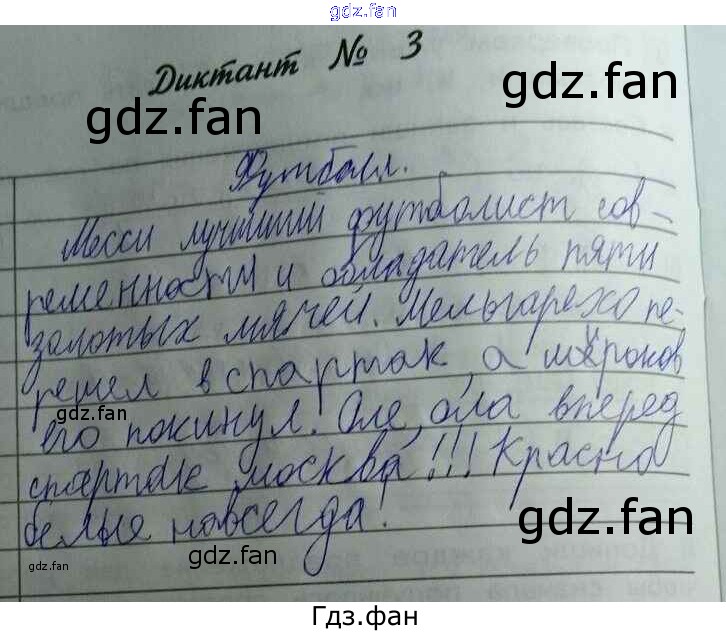 gdz.fan
Диктант № 3
gdz.fan
gdz.fan
Футболл.
Месси лучший футболист сов-
ременности и обладатель пяти
золотых мячей. Мельгарехо пе-
решел в спартак, а широков
gdz.fan
его покинул. Оле, ола вперед
спартак москва!!! Красно
gdz.fan
белые навсегда!
gdz.fan
gdz.fan
Гдз.фан